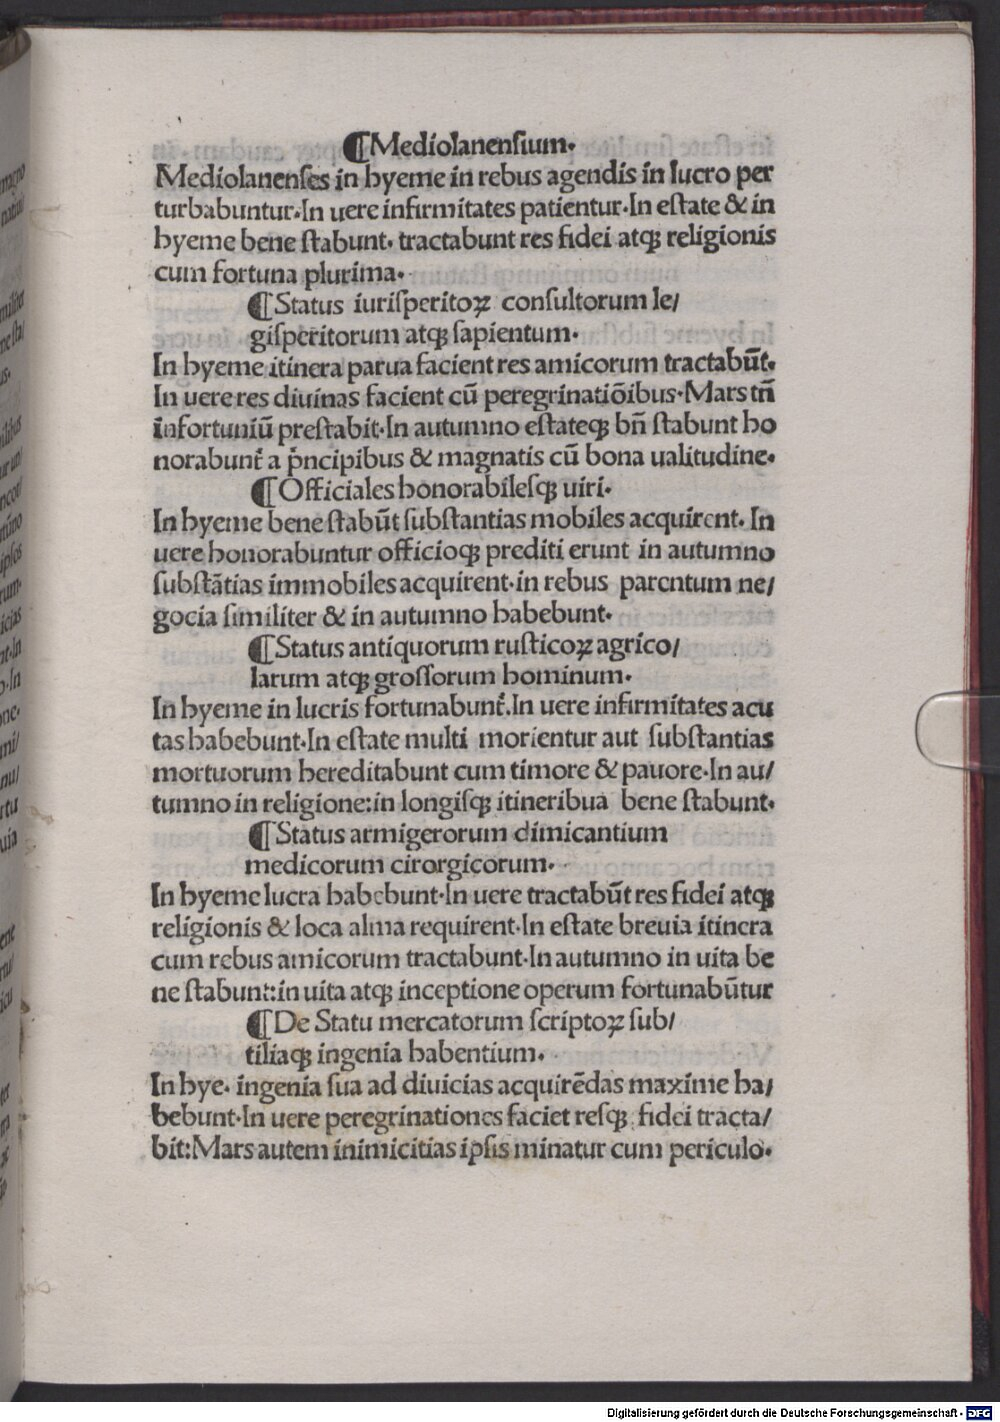 ¶Mediolanensium.
Mediolanenses in hyeme in rebus agendis in lucro per
turbabuntur.In uere infirmitates patientur.In estate & in
hyeme bene stabunt. tractabunt res fidei atqꝫ religionis
cum fortuna plurima.
¶Status iurisperitoꝝ consultorum le/
gisperitorum atqꝫ sapientum.
In hyeme itinera parua facient res amicorum tractabūt.
In uere res diuinas facient cū peregrinatiōibus.Mars tñ
infortuniū prestabit.In autumno estateqꝫ bñ stabunt ho
norabunt̃ a p̃ncipibus & magnatis cū bona ualitudine.
¶Officiales honorabilesqꝫ uiri.
In hyeme bene stabūt substantias mobiles acquirent. In
uere honorabuntur officioqꝫ prediti erunt in autumno
substātias immobiles acquirent.in rebus parentum ne/
gocia similiter & in autumno habebunt.
¶Status antiquorum rusticoꝝ agrico/
larum atqꝫ grossorum hominum.
In hyeme in lucris fortunabunt̃.In uere infirmitates acu
tas habebunt.In estate multi morientur aut substantias
mortuorum hereditabunt cum timore & pauore.In au/
tumno in religione:in longisqꝫ itineribua bene stabunt.
¶Status armigerorum dimicantium
medicorum cirorgicorum.
In hyeme lucra habebunt.In uere tractabūt res fidei atqꝫ
religionis & loca alma requirent.In estate breuia itinera
cum rebus amicorum tractabunt.In autumno in uita be
ne stabunt:in uita atqꝫ inceptione operum fortunabūtur
¶De Statu mercatorum scriptoꝝ sub/
tiliaqꝫ ingenia habentium.
In hye. ingenia sua ad diuicias acquirēdas maxime ha/
bebunt.In uere peregrinationes faciet resqꝫ fidei tracta/
bit:Mars autem inimicitias ipsis minatur cum periculo.
Digitalisierung gefördert durch die Deutsche Forschungsgemeinschaft - DFG